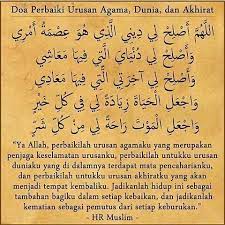 Doa Perbaiki Urusan Agama, Dunia, dan Akhirat
اَللّٰهُمَّ أَصْلِحْ لِي دِينِي الَّذِي هُوَ عِصْمَةُ أَمْرِي
وَأَصْلِحْ لِي دُنْيَايَ الَّتِي فِيهَا مَعَاشِي
وَأَصْلِحْ لِي آخِرَتِي الَّتِي فِيهَا مَعَادِي
وَاجْعَلِ الْحَيَاةَ زِيَادَةً لِي فِي كُلِّ خَيْرٍ
وَاجْعَلِ الْمَوْتَ رَاحَةً لِي مِنْ كُلِّ شَرٍّ
"Ya Allah, perbaikilah urusan agamaku yang merupakan
penjaga keselamatan urusanku, perbaikilah untukku urusan
duniaku yang di dalamnya terdapat mata pencaharianku,
dan perbaikilah untukku urusan akhiratku yang akan
menjadi tempat kembaliku. Jadikanlah hidup ini sebagai
tambahan bagiku dalam setiap kebaikan, dan jadikanlah
kematian sebagai pemutus dari setiap keburukan."
- HR Muslim -